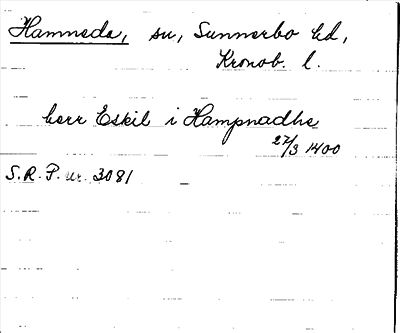 Hamneda, sn, Sunnerbo hd,
Kronob. l.
herr Eskil i Hampnadhe
27/3 1400
S.R.P. nr. 3081